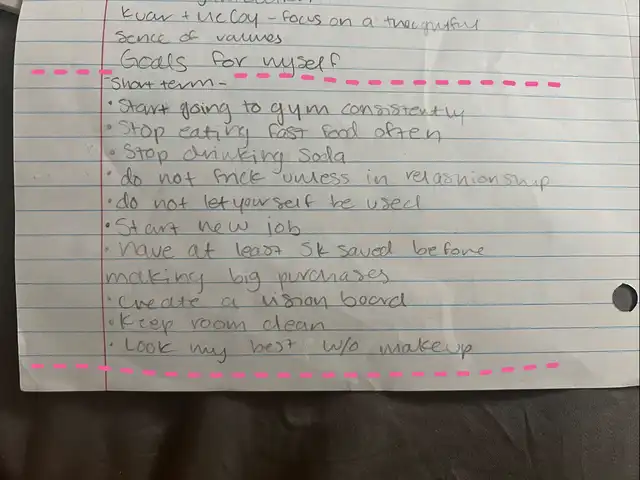 Kvar + McCoy - focus on a thoughtful
sence of values
Goals for myself
-Short term-
• Start going to gym consistently
• Stop eating fast food often
• Stop drinking soda
• do not fuck unless in relashionship
• do not let yourself be used
• Start new job
• have at least 5k saved before
making big purchases
• Create a vision board
• Keep room clean
• Look my best w/o makeup